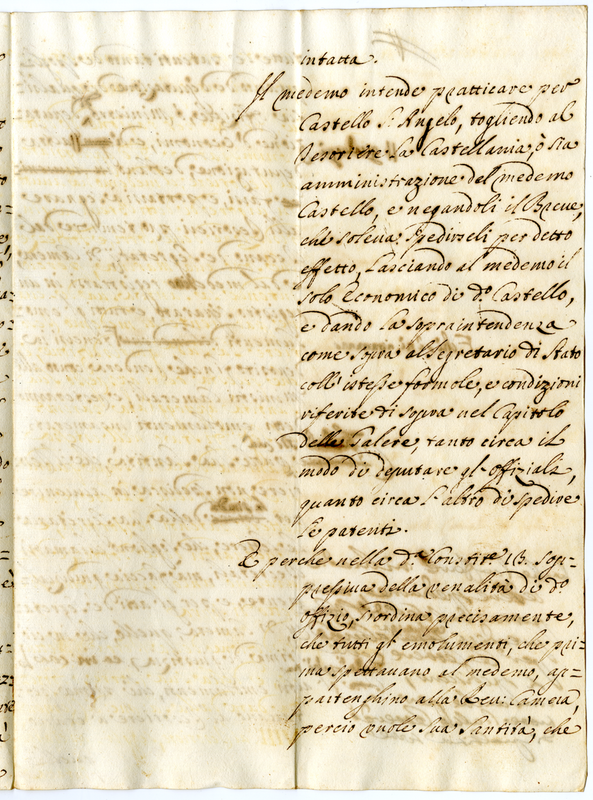 intatta.
Il medemo intende pratticare per
Castello S. Angelo, togliendo al
Tesoriere la Castellania, ò sia
amministrazione del medemo
Castello, e negandoli il Breue,
che soleua spedirseli per detto
effetto, lasciando al medemo il
solo Economico di do. Castello,
e dando la sopraintendenza
come sopra al Segretario di Stato
coll' istesse formole, e condizioni
riferite di sopra nel Capitolo
delle Galere, tanto circa il
modo di deputare gl' offiziali,
quanto circa l'altro di spedire
le patenti.
E perche nella da. Constite. 13. sop=
pressiua della venalità di do.
offizio, s'ordina precisamente,
che tutti gl' emolumenti, che pri=
ma spettauano al medemo, ap=
partenghino alla Reu: Camera,
perciò vuole Sua Santità, che